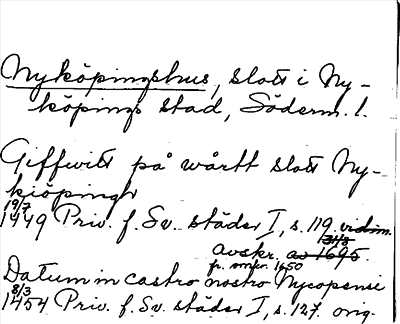 Nyköpingshus, slott i Ny-
köpings stad, Söderm. l.
Giffwitt på wårtt slott Ny-
kiöpingh
19/7
1449 Priv. f. Sv. städer I, s. 119 vidim.
31/8
avskr. av 1695.
fr. omkr. 1650
Datum in castro nostro Nycopensi
8/3
1454 Priv. f. Sv. städer I, s. 127. orig.